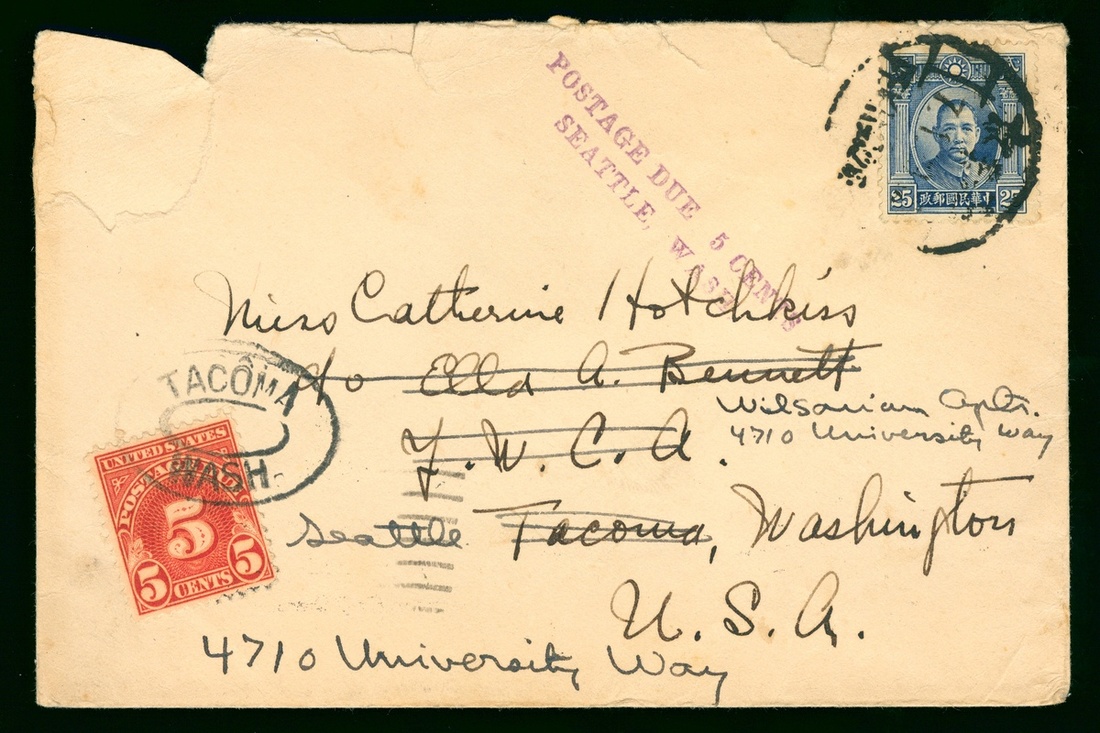 POSTAGE DUE 5 CENTS
SEATTLE, WASH.
25 政郵國民華中 25
Miss Catherine Hotchkiss
c/o Ella A. Bennett
Wilsonian Apts.
Y.W.C.A.
4710 University Way
Seattle Tacoma, Washington
U.S.A.
4710 University Way
TACOMA
WASH.
UNITED STATES
POSTAGE DUE
5
5 CENTS 5